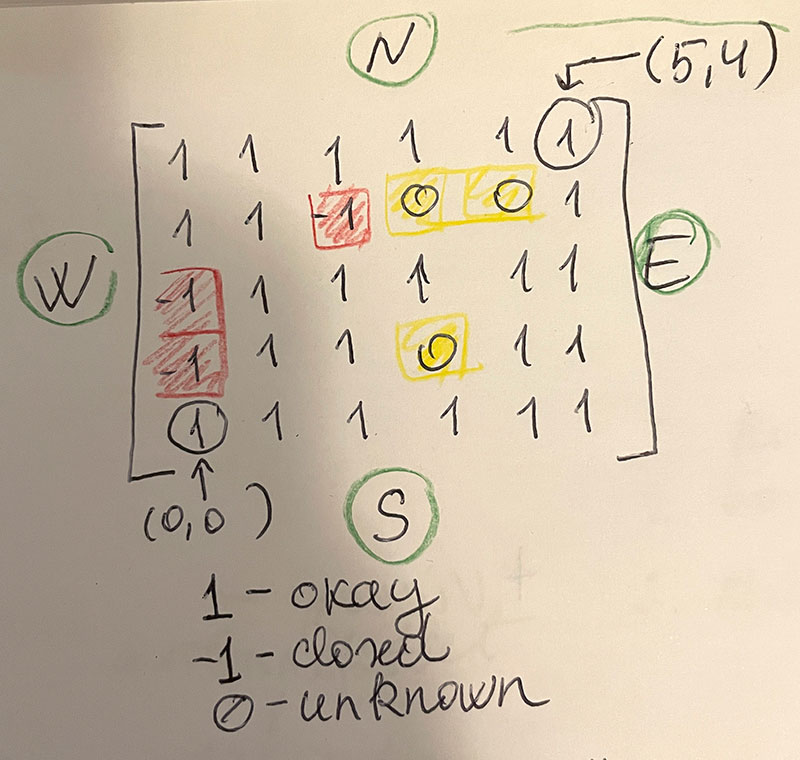 N
(5,4)
1 1 1 1 1 1
1 1 -1 0 0 1
W
E
-1 1 1 1 1 1
-1 1 1 0 1 1
1 1 1 1 1 1
(0,0)
S
1 - okay
-1 - closed
0 - unknown